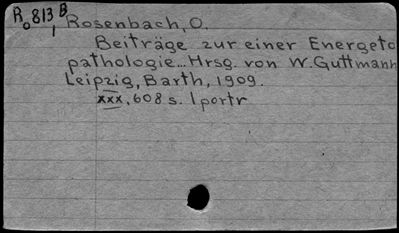 R₀813,B
Rosenbach, O.
Beiträge zur einer Energeto
pathologie... Hrsg. von W. Guttmann
Leipzig, Barth, 1909.
xxx, 608 s. 1 portr